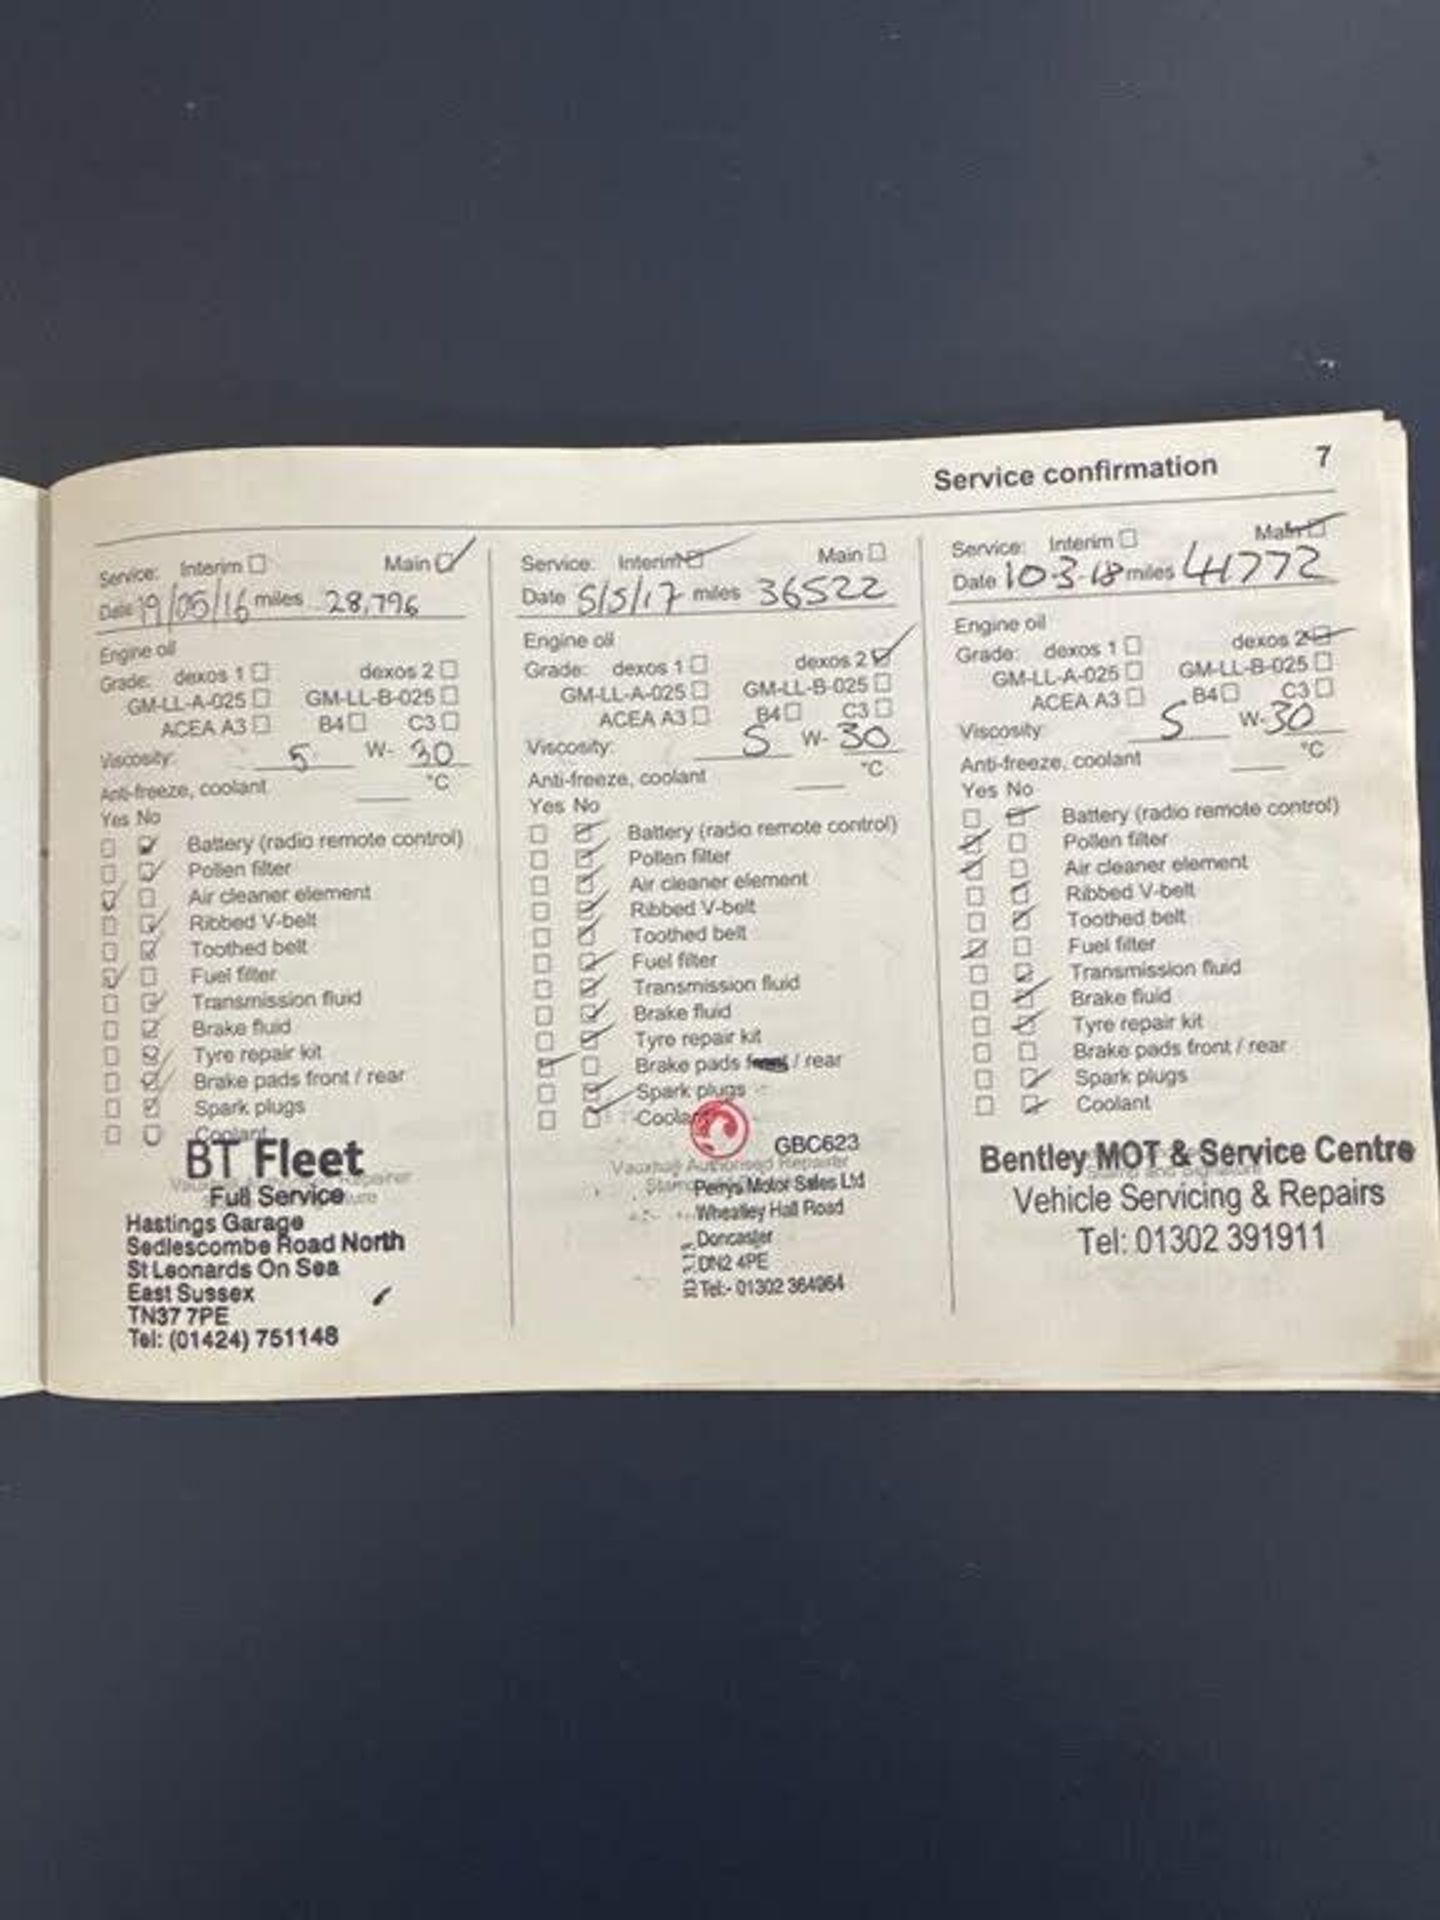 Service confirmation 7
Service: Interim Main
Date 19/05/16 miles 28,796
Engine oil
Grade: dexos 1 dexos 2
GM-LL-A-025 GM-LL-B-025
ACEA A3 B4 C3
Viscosity: 5 W- 30
Anti-freeze, coolant °C
Yes No
Battery (radio remote control)
Pollen filter
Air cleaner element
Ribbed V-belt
Toothed belt
Fuel filter
Transmission fluid
Brake fluid
Tyre repair kit
Brake pads front / rear
Spark plugs
Coolant
BT Fleet
Full Service
Hastings Garage
Sedlescombe Road North
St Leonards On Sea
East Sussex
TN37 7PE
Tel: (01424) 751148
Service: Interim Main
Date 5/5/17 miles 36522
Engine oil
Grade: dexos 1 dexos 2
GM-LL-A-025 GM-LL-B-025
ACEA A3 B4 C3
Viscosity: 5 W- 30
Anti-freeze, coolant °C
Yes No
Battery (radio remote control)
Pollen filter
Air cleaner element
Ribbed V-belt
Toothed belt
Fuel filter
Transmission fluid
Brake fluid
Tyre repair kit
Brake pads front / rear
Spark plugs
Coolant
GBC623
Vauxhall Authorised Repairer
Perrys Motor Sales Ltd
Wheatley Hall Road
Doncaster
DN2 4PE
Tel:- 01302 364964
Service: Interim Main
Date 10-3-18 miles 41772
Engine oil
Grade: dexos 1 dexos 2
GM-LL-A-025 GM-LL-B-025
ACEA A3 B4 C3
Viscosity: 5 W- 30
Anti-freeze, coolant °C
Yes No
Battery (radio remote control)
Pollen filter
Air cleaner element
Ribbed V-belt
Toothed belt
Fuel filter
Transmission fluid
Brake fluid
Tyre repair kit
Brake pads front / rear
Spark plugs
Coolant
Bentley MOT & Service Centre
Vehicle Servicing & Repairs
Tel: 01302 391911